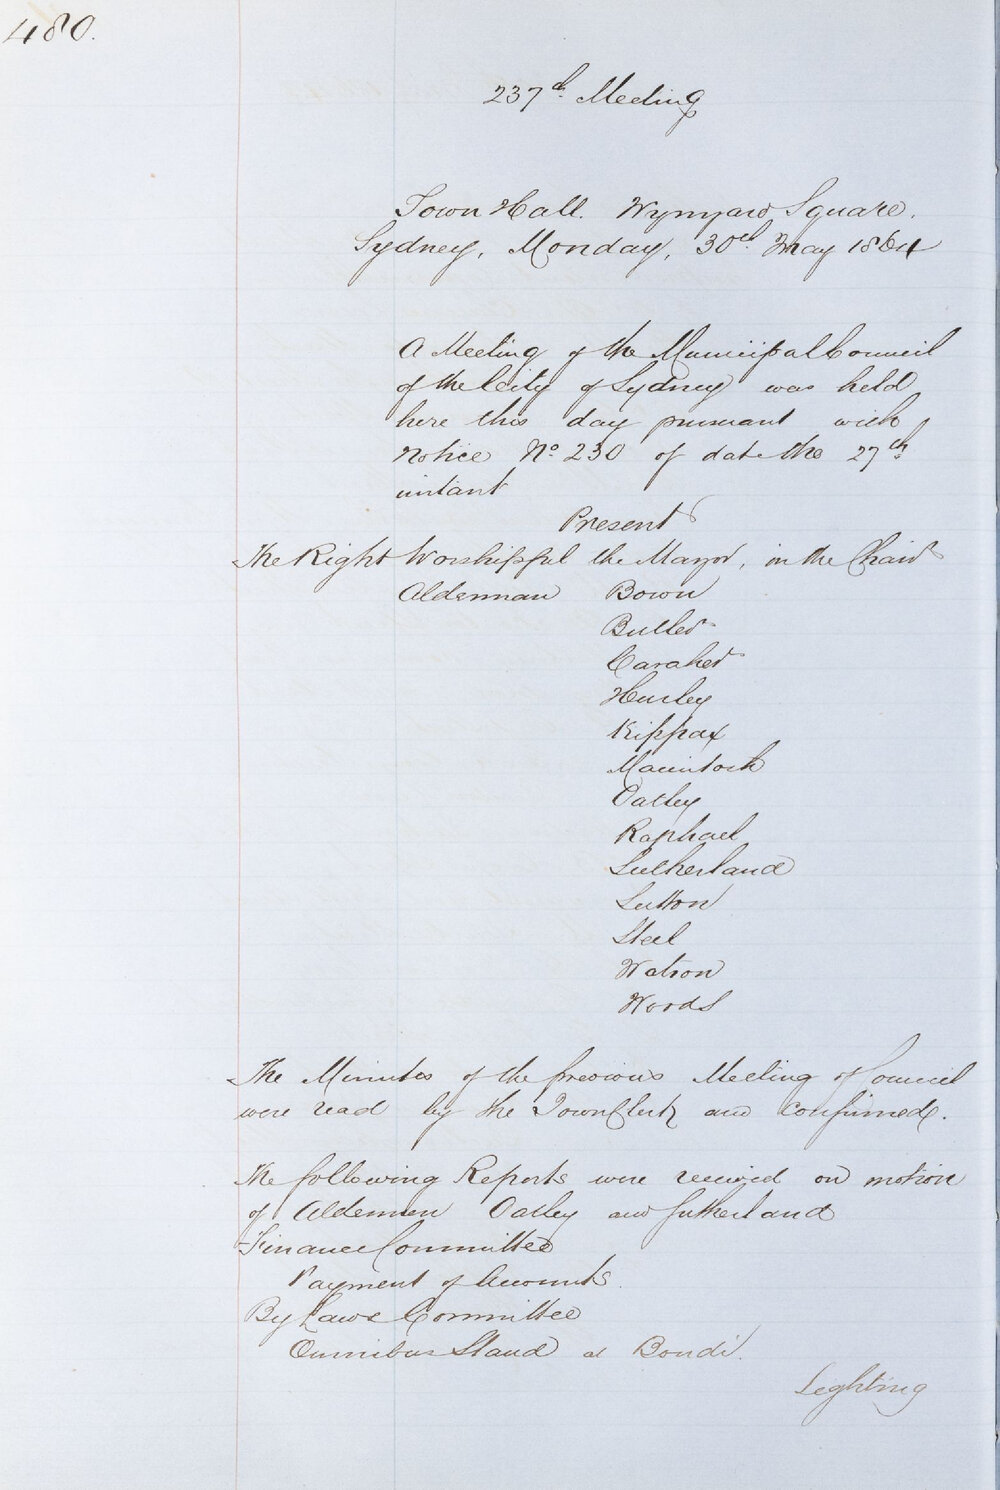 480.
237th Meeting
Town Hall. Wynyard Square.
Sydney, Monday, 30th May 1864
A Meeting of the Municipal Council
of the City of Sydney was held
here this day pursuant with
notice No. 230 of date the 27th
instant
Present
The Right Worshipful the Mayor, in the Chair
Alderman Bown
Butler
Caraher
Hurley
Kippax
Macintosh
Oatley
Raphael
Sutherland
Sutton
Steel
Watson
Woods
The Minutes of the previous Meeting of Council
were read by the Town Clerk and Confirmed.
The following Reports were received on motion
of Aldermen Oatley and Sutherland
Finance Committee
Payment of Accounts.
By Laws Committee
Omnibus Stand at Bondi.
Lighting